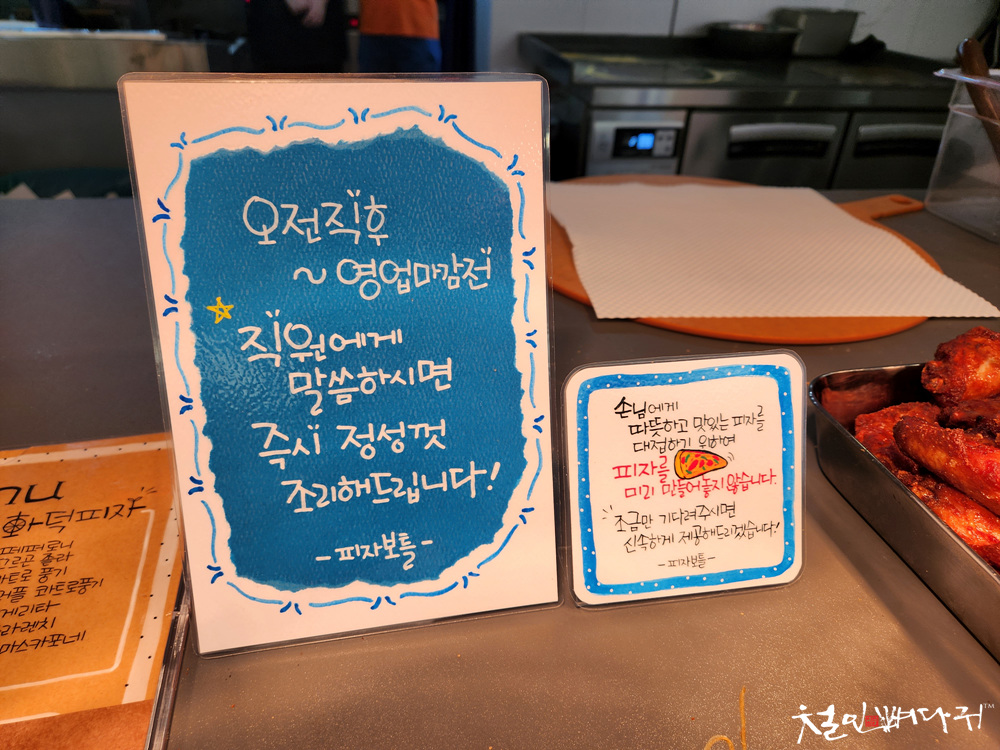 오전직후
~ 영업마감전
직원에게
말씀하시면
즉시 정성껏
조리해드립니다!
- 피자보틀 -
손님에게
따뜻하고 맛있는 피자를
대접하기 위하여
피자를
미리 만들어놓지 않습니다.
조금만 기다려주시면
신속하게 제공해드리겠습니다!
- 피자보틀 -
화덕피자
페퍼로니
고르곤 졸라
콰트로 풍기
러플 콰트로풍기
게리타
라렌치
마스카포네
철민뼈다귀™